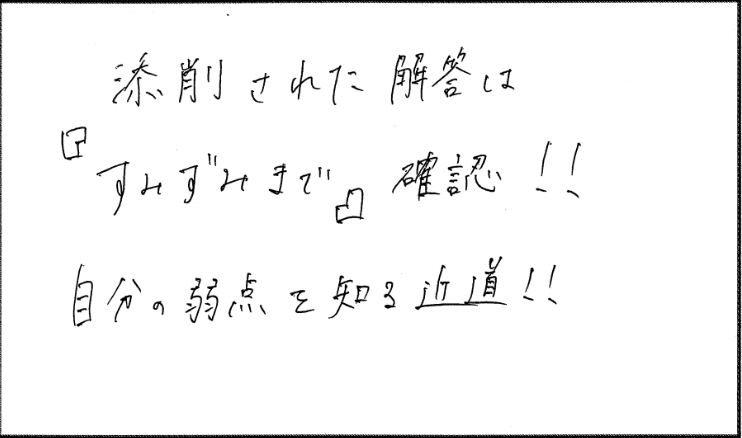 添削された解答は
『すみずみまで』確認!!
自分の弱点を知る近道!!